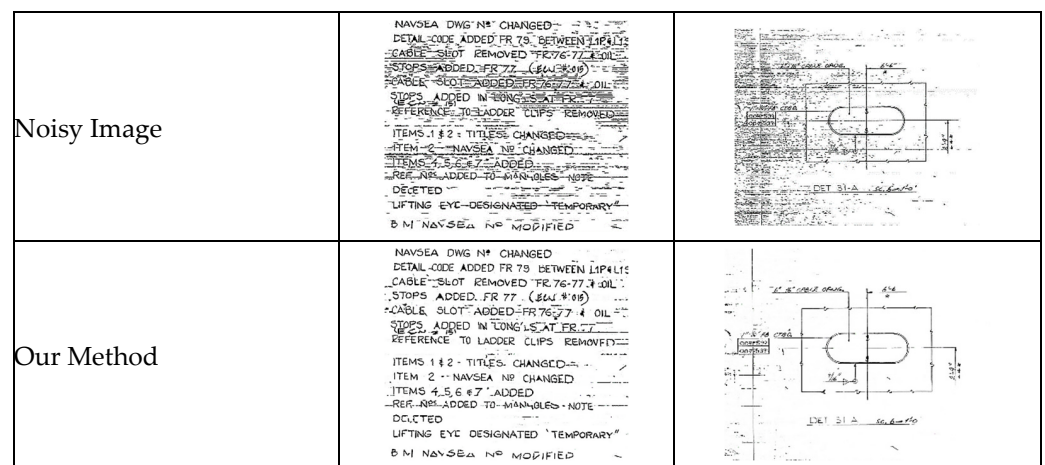 Noisy Image
NAVSEA DWG Nº CHANGED
DETAIL-CODE ADDED FR 79 BETWEEN L1P&L1S
CABLE SLOT REMOVED FR.76-77 & OIL
STOPS ADDED FR 77 (ECN #015)
CABLE SLOT ADDED FR 76-77 & OIL
STOPS ADDED IN LONG'LS AT FR.
REFERENCE TO LADDER CLIPS REMOVED
ITEMS 1 & 2 - TITLES CHANGED
ITEM 2 NAVSEA Nº CHANGED
ITEMS 4,5,6 & 7 ADDED
REF. Nºs ADDED TO MANHOLES NOTE
DELETED
LIFTING EYE DESIGNATED "TEMPORARY"
B M NAVSEA Nº MODIFIED
DET 31-A
Our Method
NAVSEA DWG Nº CHANGED
DETAIL-CODE ADDED FR 79 BETWEEN L1P&L1S
CABLE SLOT REMOVED FR.76-77 & OIL
STOPS ADDED FR 77 (ECN #015)
CABLE SLOT ADDED FR 76-77 & OIL
STOPS ADDED IN LONG'LS AT FR.
REFERENCE TO LADDER CLIPS REMOVED
ITEMS 1 & 2 - TITLES CHANGED
ITEM 2 -- NAVSEA Nº CHANGED
ITEMS 4,5,6 & 7 ADDED
REF. Nºs ADDED TO MANHOLES - NOTE
DELETED
LIFTING EYE DESIGNATED "TEMPORARY"
B M NAVSEA Nº MODIFIED
DET 31 A